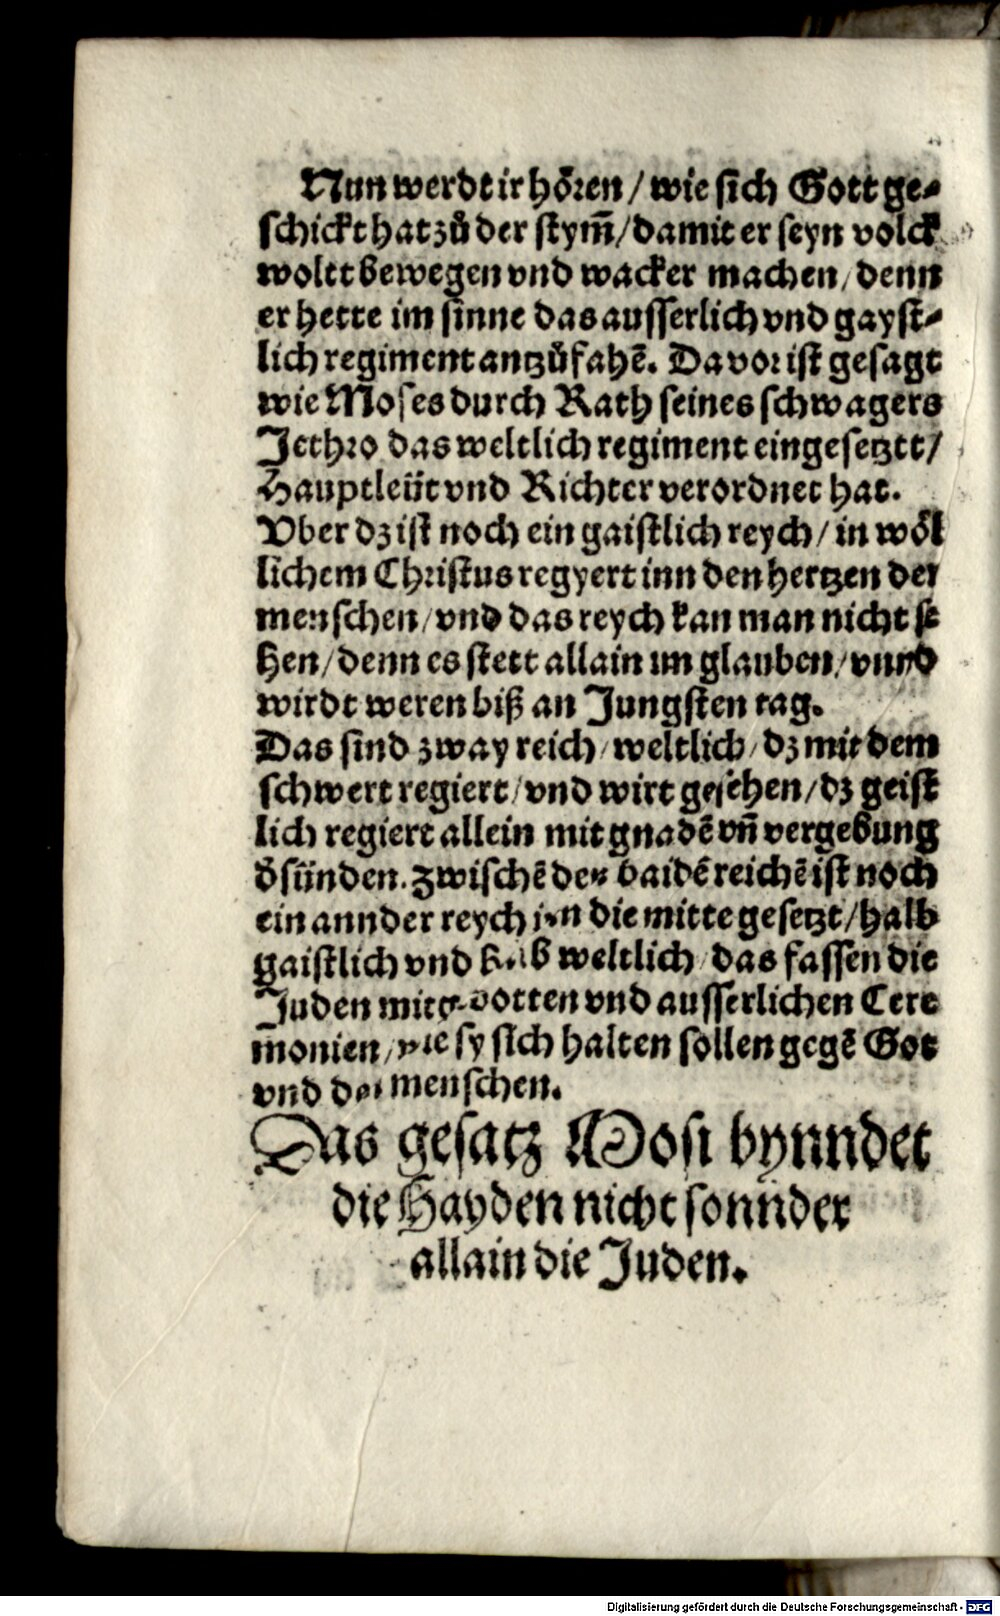 Nun werdt ir hören / wie sich Gott ge⸗
schickt hat zů der stym̃ / damit er seyn volck
woltt bewegen vnd wacker machen / denn
er hette im sinne das ausserlich vnd gayst⸗
lich regiment antzůfahẽ. Da vor ist gesagt
wie Moses durch Rath seines schwagers
Jethro das weltlich regiment eingesetztt /
Hauptleüt vnd Richter verordnet hat.
Vber dz ist noch ein gaistlich reych / in wöl
lichem Christus regyert inn den hertzen der
menschen / vnd das reych kan man nicht se
hen / denn es stett allain im glauben / vnnd
wirdt weren biß an Jungsten tag.
Das sind zway reich / weltlich / dz mit dem
schwert regiert / vnd wirt gesehen / dz geist
lich regiert allein mit gnadẽ vñ vergebung
d̕ sünden. zwischẽ den baidẽ reichẽ ist noch
ein annder reych inn die mitte gesetzt / halb
gaistlich vnd halb weltlich / das fassen die
Juden mit gebotten vnd ausserlichen Cere
monien / wie sy sich halten sollen gegẽ Got
vnd den menschen.
Das gesatz Mosi bynndet
die Hayden nicht sonnder
allain die Juden.
Digitalisierung gefördert durch die Deutsche Forschungsgemeinschaft - DFG